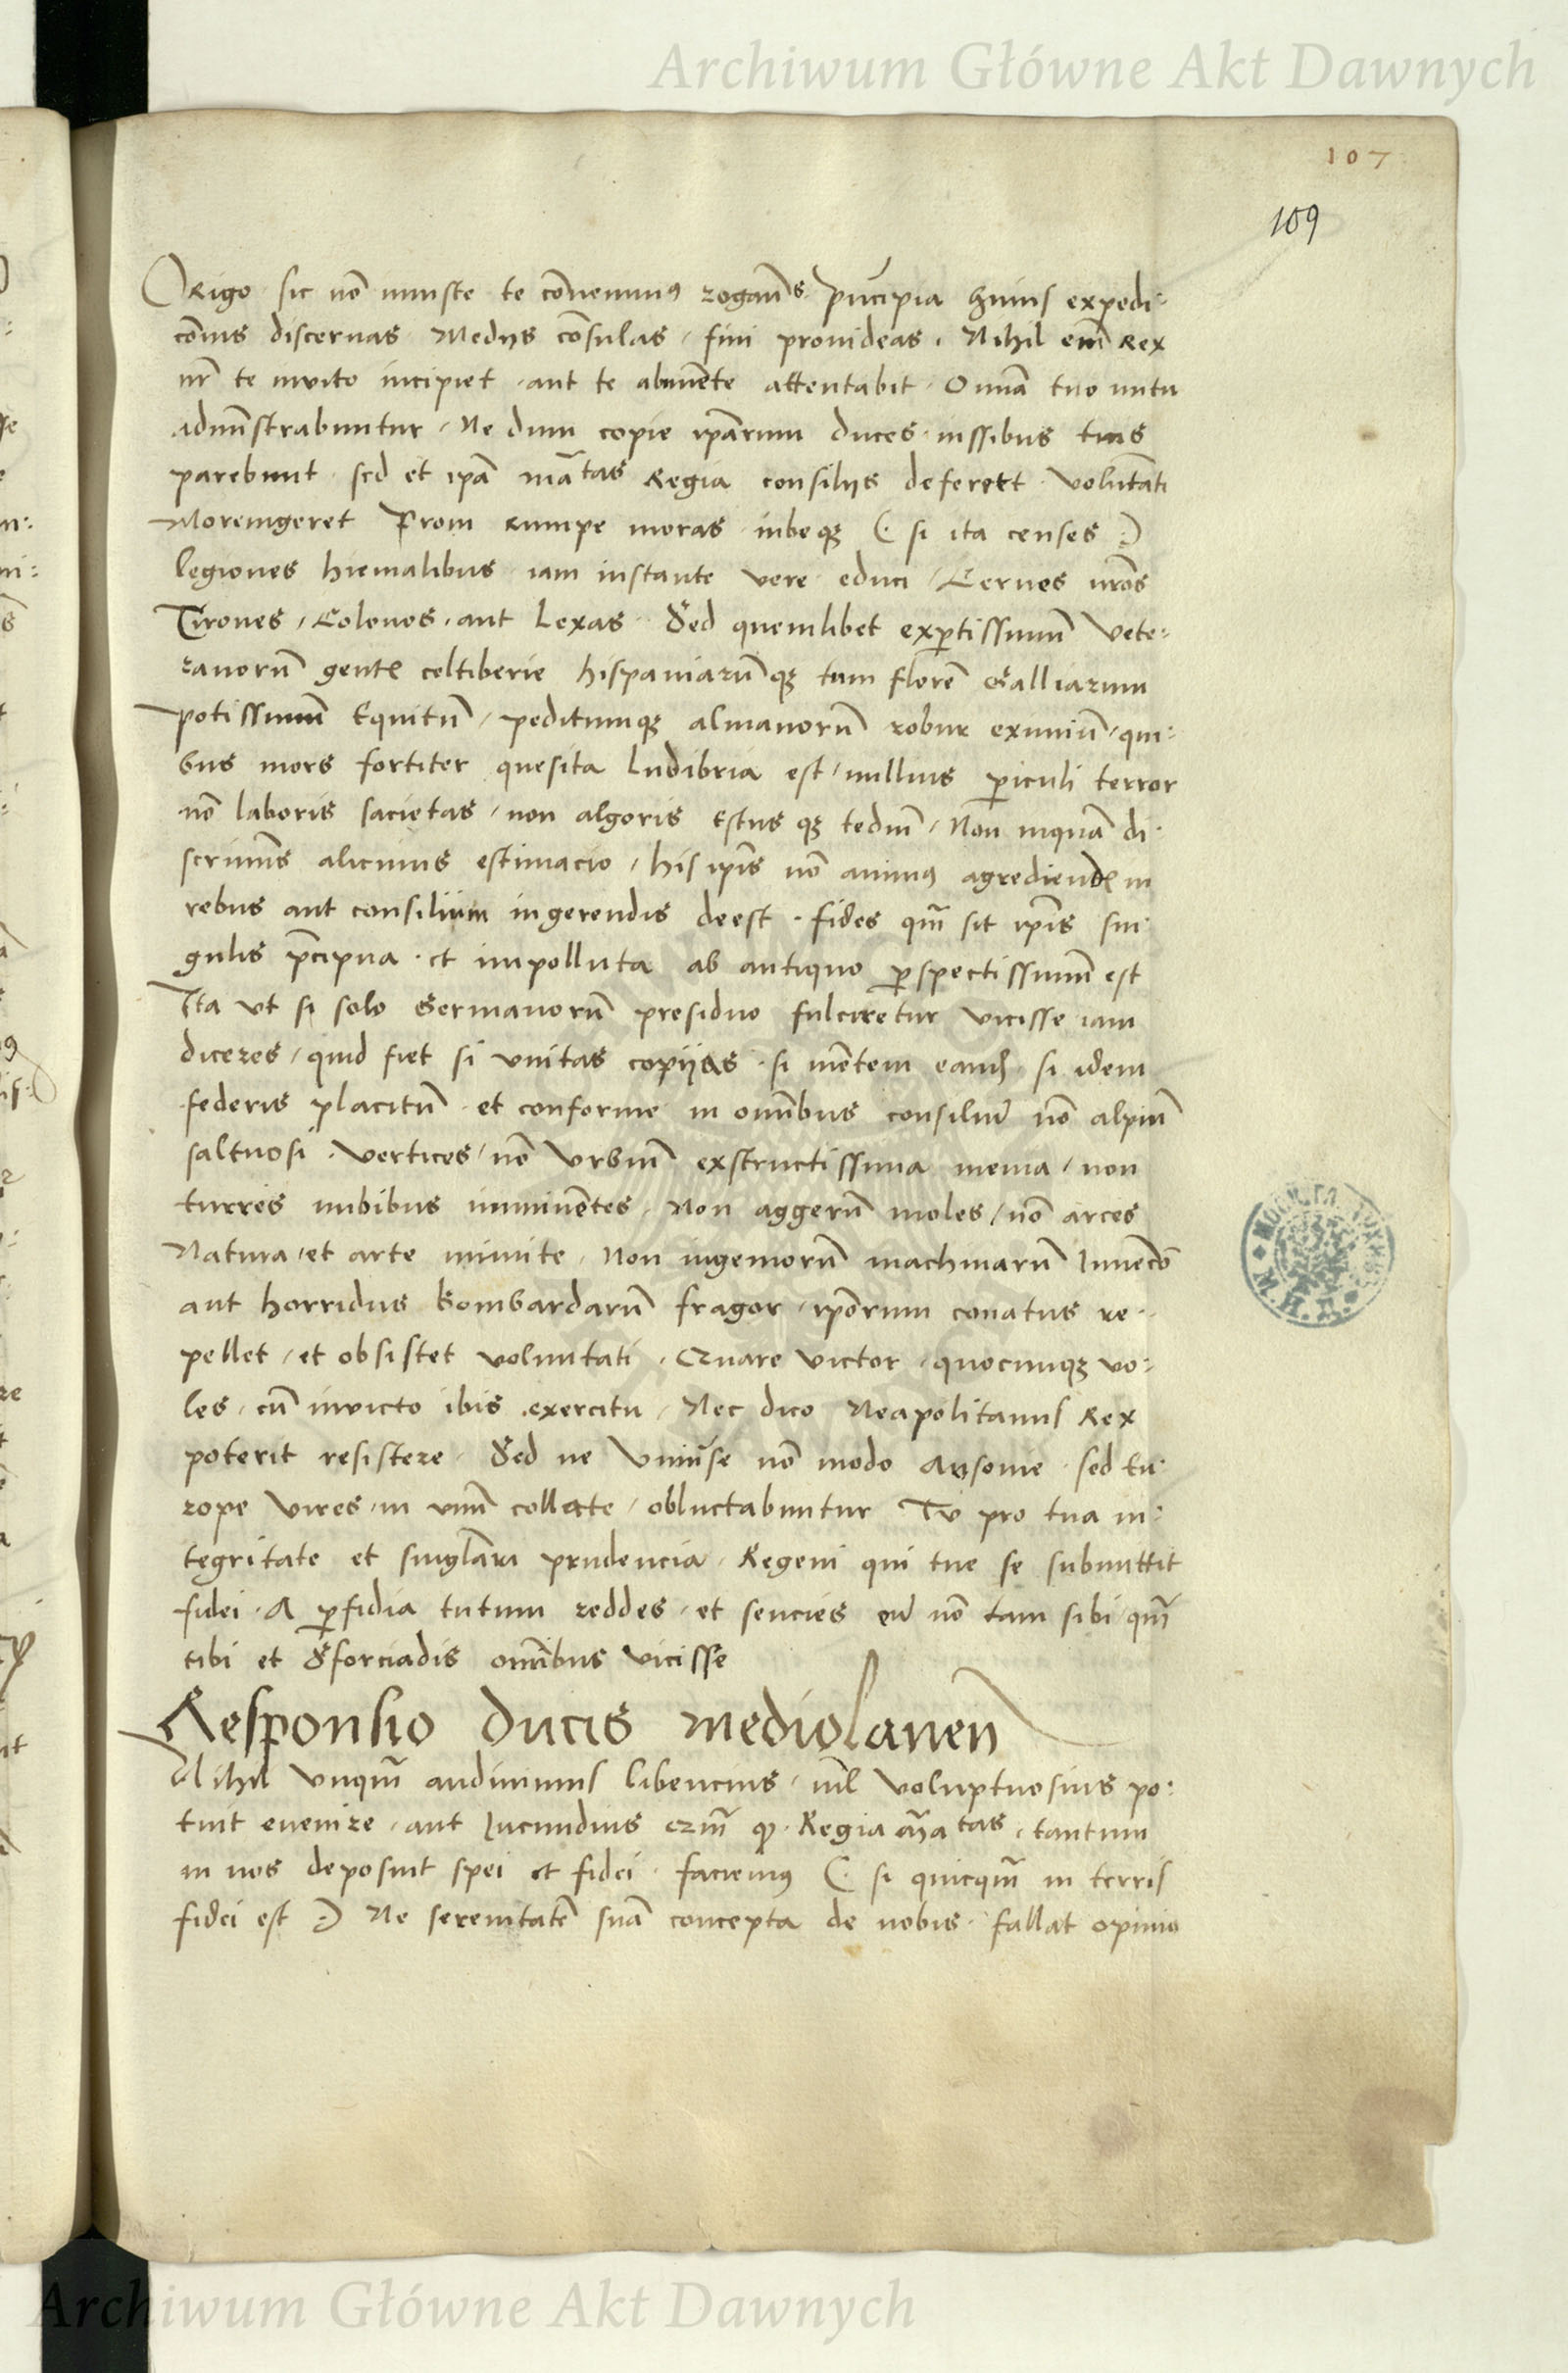 Archiwum Główne Akt Dawnych
107
109
ORigo sic nō iniuste te cōuenimus rogantes prīcipia huius expedi:
cōnis discernas Medijs cōsulas, fini prouideas. Nihil enī Rex
nr̄ te inuito incipiet, aut te abnuēte attentabit. Omnia tuo nutu
adminīstrabuntur, Ne dum copie ipārum duces iussibus tuis
parebunt sed et ipā maīe͞tas Regia consilijs deferett voluntati
Moremgeret Proin rumpe moras iubeqꝫ (: si ita censes :)
legiones hiemalibus iam instante vere educi, Cernes nrōs
Tirones, Colonos, aut lexas Sed quemlibet exꝑtissimū vete:
ranorū gentē celtiberie hispaniarūqꝫ tum florē Galliarum
potissimū Equitū, peditumqꝫ almanorū robur eximiū, qui:
bus mors fortiter quesita ludibria est, nullius ꝑiculi terror
nō laboris sacietas, non algoris Estus qꝫ tediū, Non inquā di:
scriminis alicuius estimacio, his ipīs nō animus agrediendis in
rebus aut consilium ingerendis deest. fides qm̄ sit ipīs sin:
gulis p̄cipua et impolluta ab antiquo ꝑspectissimū est
Ita ut si solo Germanorū presidio fulciretur vicisse iam
diceres, quid fiet si vnitas copijas si mētem eamdē si idem
federis placitū et conforme in omībus consiliū nō alpiū
saltuosi vertices, nō vrbiū exstructissima menia, non
turres nubibus imminētes, Non aggerū moles, nō arces
Natura, et arte munite, Non ingeniorū machinarū Inuencō
aut horridus bombardarū fragor, ipōrum conatus re:
pellet, et obsistet voluntati, Quare victor quocunqꝫ vo:
les, cū inuicto ibis exercitu, Nec dico Neapolitanus Rex
poterit resistere, Sed ne Vniuerse nō modo Ausonie sed Eu:
rope vires in vnū collecte, obluctabuntur Tu pro tua in:
tegritate et singlari prudencia, Regem qui tue se submittit
fidei, A ꝑfidia tutum reddes, et sencies eū nō tam sibi qm̄
tibi et Sforciadis omībus vicisse
Responsio ducis mediolanen̄
Nihil vnqm̄ audiuimus libencius, nīl voluptuosius po:
tuit euenire, aut Iucundius qm̄ ꝙ Regia ma͞tas, tantum
in nos deposuit spei et fidei faciemus (: si quicqm̄ in terris
fidei est :) Ne serenitatē suā concepta de nobis fallat opinio
Archiwum Główne Akt Dawnych